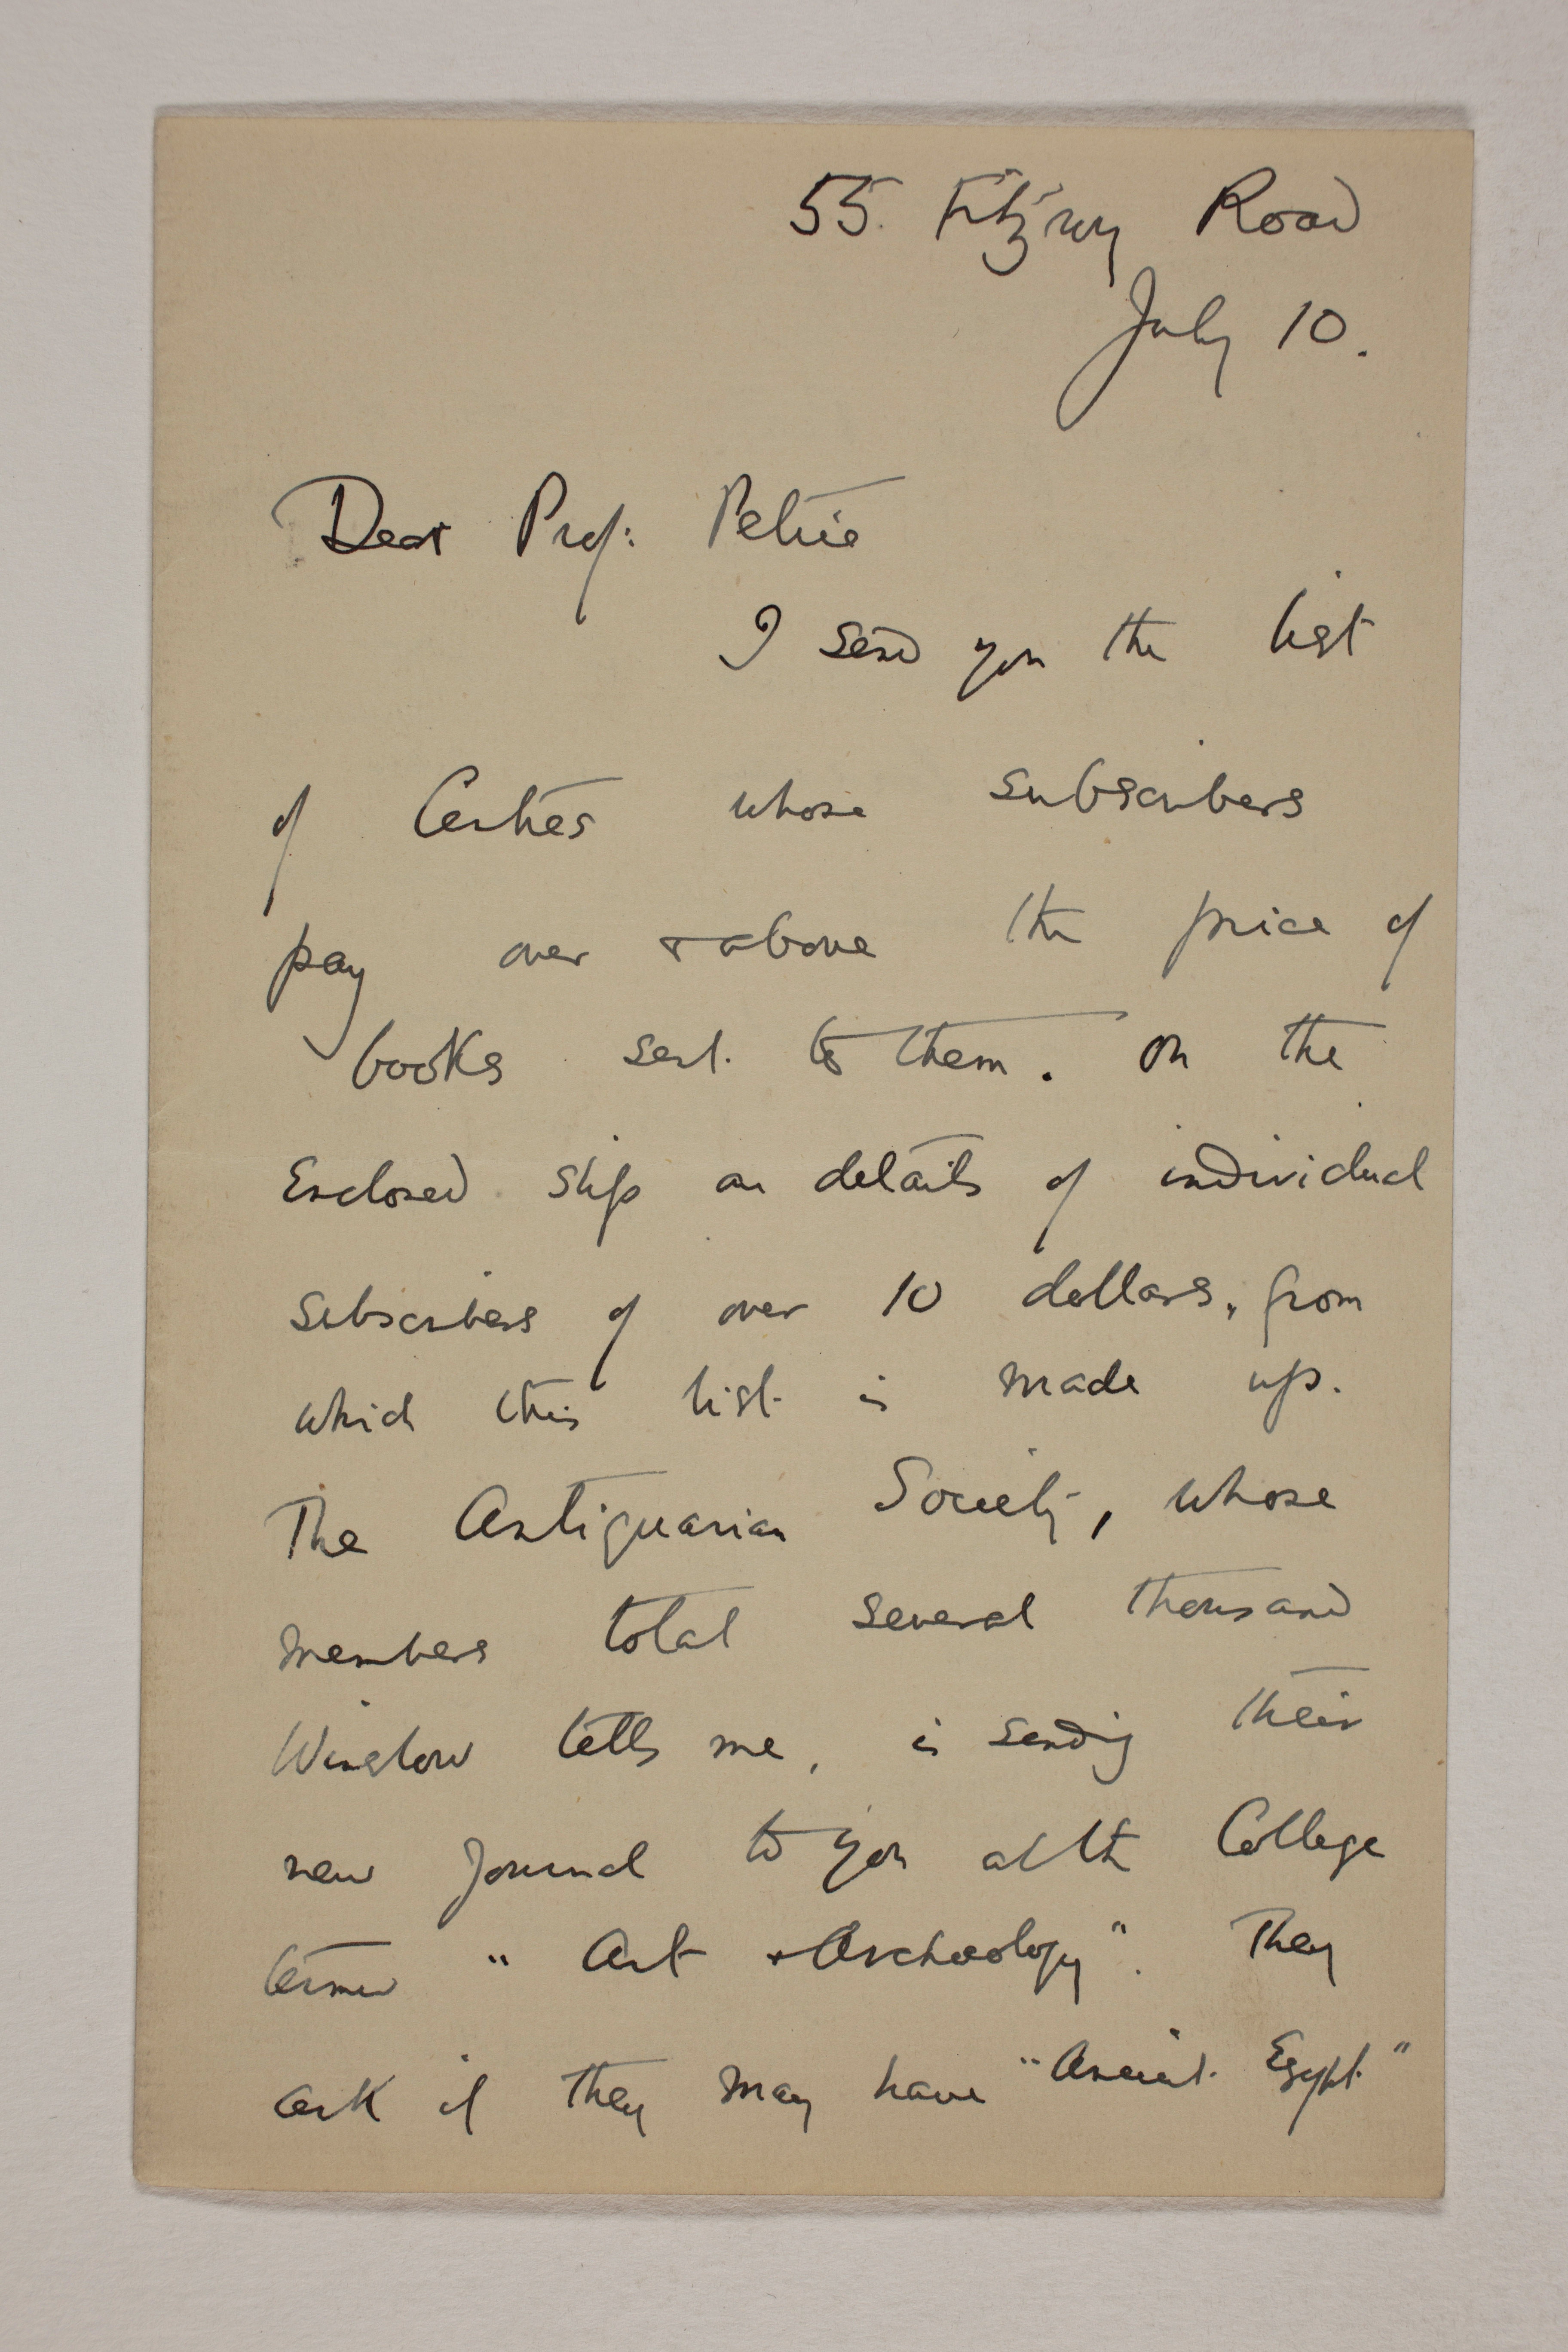 55. Fitzroy Road
July 10.
Dear Prof: Petrie
I send you the list
of Centres whose subscribers
pay over & above the price of
books sent to them. On the
enclosed slip are details of individual
subscribers of over 10 dollars, from
which this list is made up.
The Antiquarian Society, whose
members total several thousand
Winslow tells me, is sending their
new Journal to you at the College
termed "Art & Archaeology". They
ask if they may have "Ancient Egypt"